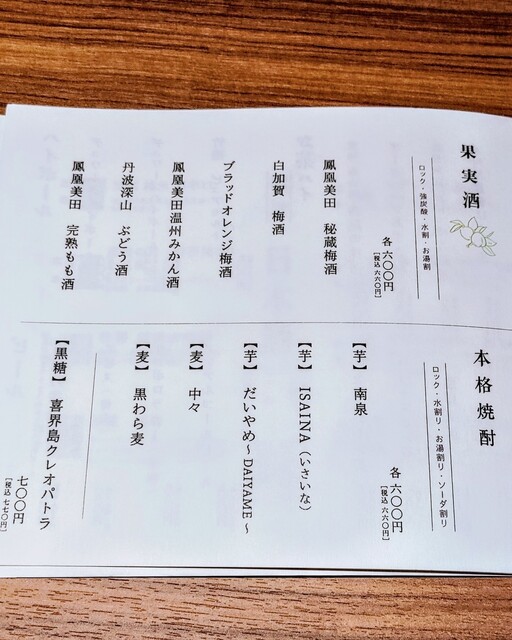 果実酒
ロック・強炭酸・水割・お湯割
各 六〇〇円
[税込 六六〇円]
鳳凰美田 秘蔵梅酒
白加賀 梅酒
ブラッドオレンジ梅酒
鳳凰美田温州みかん酒
丹波深山 ぶどう酒
鳳凰美田 完熟もも酒
本格焼酎
ロック・水割り・お湯割り・ソーダ割り
各 六〇〇円
[税込 六六〇円]
【芋】 南泉
【芋】 ISAINA（いさいな）
【芋】 だいやめ～DAIYAME～
【麦】 中々
【麦】 黒わら麦
【黒糖】 喜界島クレオパトラ
七〇〇円
[税込 七七〇円]